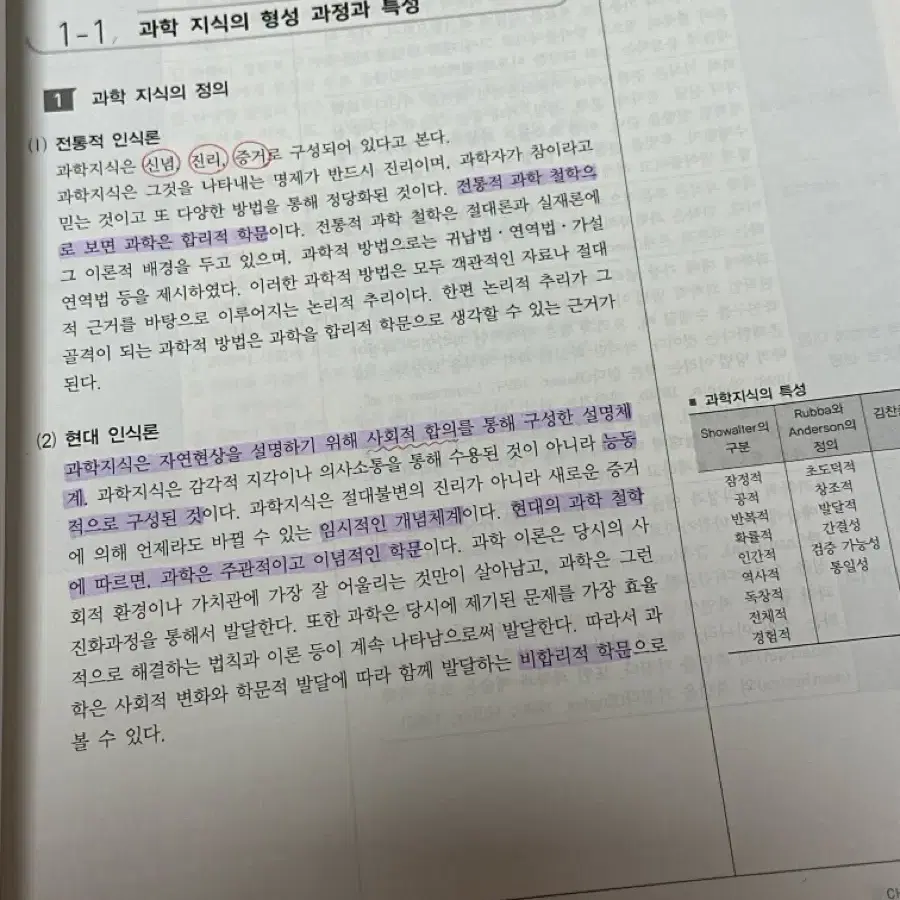 1-1, 과학 지식의 형성 과정과 특성
1 과학 지식의 정의
(1) 전통적 인식론
과학지식은 신념, 진리, 증거로 구성되어 있다고 본다.
과학지식은 그것을 나타내는 명제가 반드시 진리이며, 과학자가 참이라고
믿는 것이고 또 다양한 방법을 통해 정당화된 것이다. 전통적 과학 철학으
로 보면 과학은 합리적 학문이다. 전통적 과학 철학은 절대론과 실재론에
그 이론적 배경을 두고 있으며, 과학적 방법으로는 귀납법·연역법·가설
연역법 등을 제시하였다. 이러한 과학적 방법은 모두 객관적인 자료나 절대
적 근거를 바탕으로 이루어지는 논리적 추리이다. 한편 논리적 추리가 그
골격이 되는 과학적 방법은 과학을 합리적 학문으로 생각할 수 있는 근거가
된다.
(2) 현대 인식론
과학지식은 자연현상을 설명하기 위해 사회적 합의를 통해 구성한 설명체
계. 과학지식은 감각적 지각이나 의사소통을 통해 수용된 것이 아니라 능동
적으로 구성된 것이다. 과학지식은 절대불변의 진리가 아니라 새로운 증거
에 의해 언제라도 바뀔 수 있는 임시적인 개념체계이다. 현대의 과학 철학
에 따르면, 과학은 주관적이고 이념적인 학문이다. 과학 이론은 당시의 사
회적 환경이나 가치관에 가장 잘 어울리는 것만이 살아남고, 과학은 그런
진화과정을 통해서 발달한다. 또한 과학은 당시에 제기된 문제를 가장 효율
적으로 해결하는 법칙과 이론 등이 계속 나타남으로써 발달한다. 따라서 과
학은 사회적 변화와 학문적 발달에 따라 함께 발달하는 비합리적 학문으로
볼 수 있다.
■ 과학지식의 특성
Showalter의
구분
Rubba와
Anderson의
정의
잠정적
공적
반복적
확률적
인간적
역사적
독창적
전체적
경험적
초도덕적
창조적
발달적
간결성
검증 가능성
통일성